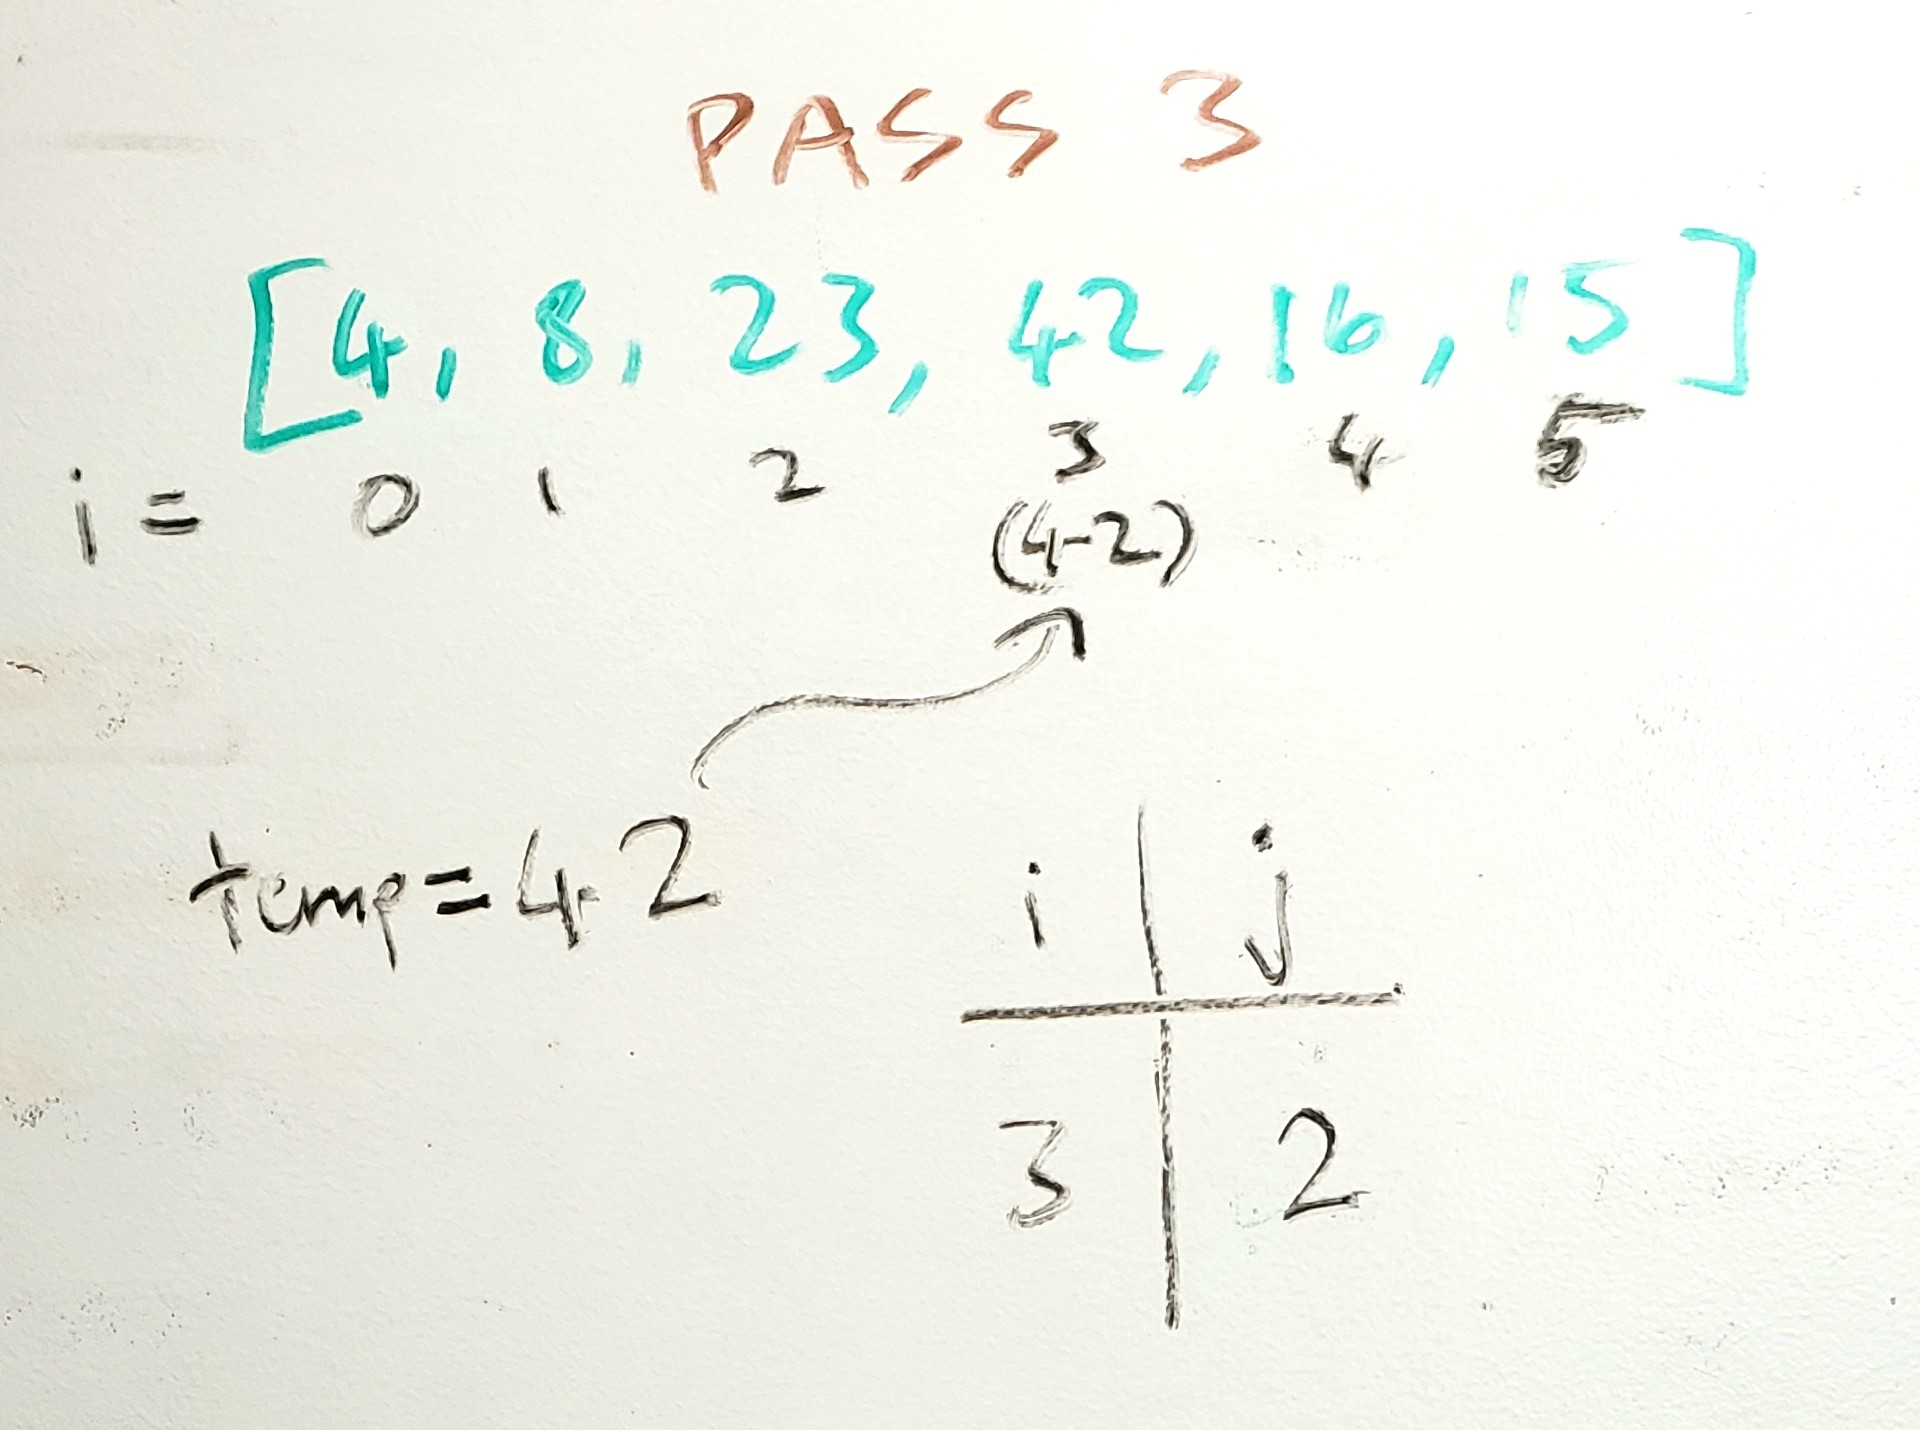 PASS 3
[4, 8, 23, 42, 16, 15]
i = 0 1 2 3 4 5
(42)
temp = 42
i j
3 2